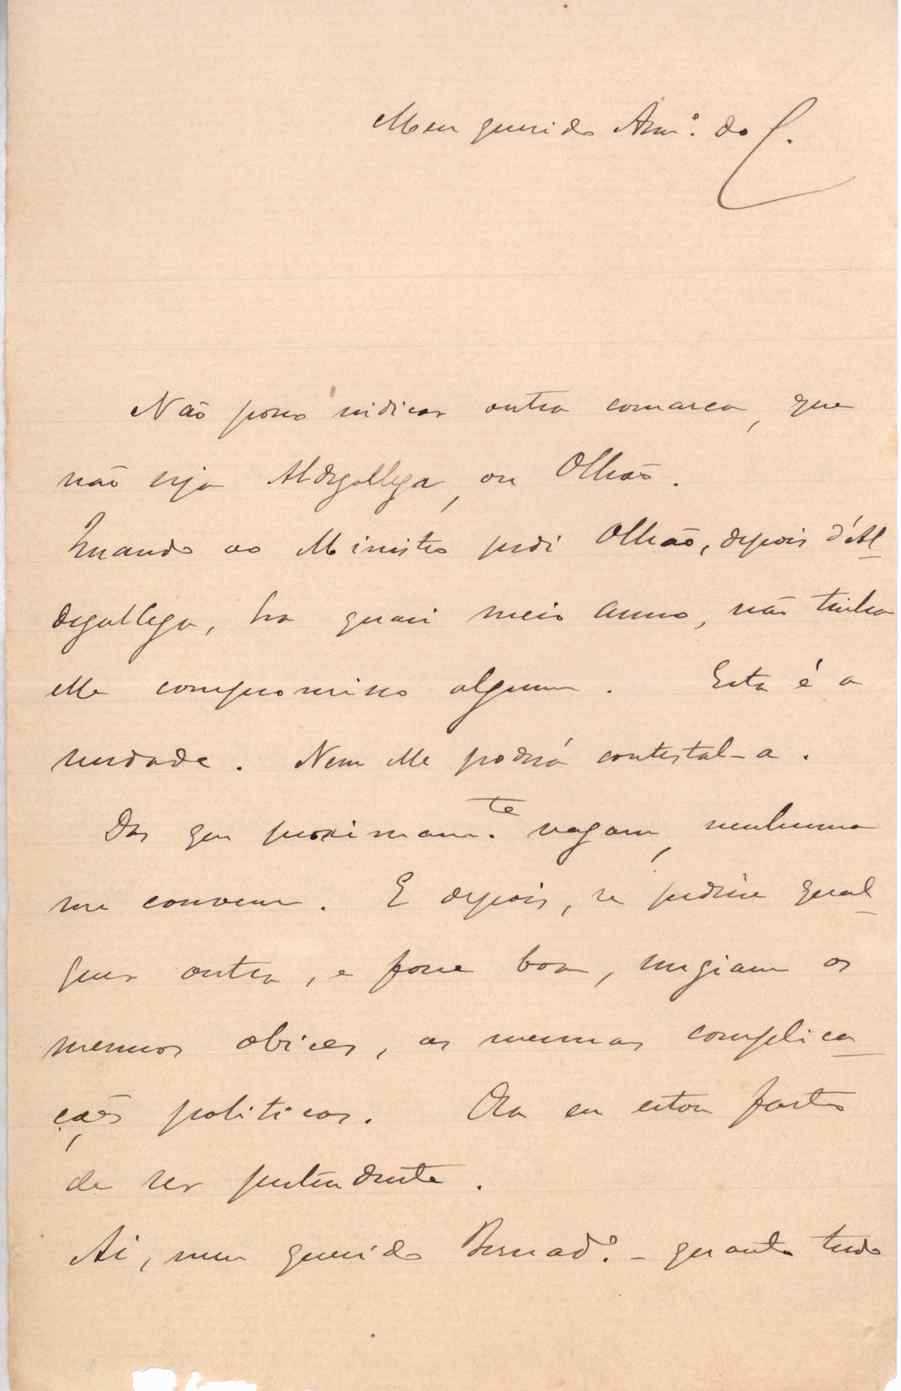 Meu querido Am.º do C.
Não posso indicar outra comarca, que
não seja Aldegallega, ou Olhão.
Quando ao Ministro pedi Olhão, depois d'Al-
degallega, ha quasi meio anno, não tinha
elle compromisso algum. Esta é a
verdade. Nem elle poderá contestal-a.
Das que proximam.te vagam, nenhuma
me convem. E depois, se pedisse qual-
quer outra, e fosse boa, surgiam os
mesmos obices, as mesmas complica-
ções politicas. Ora eu estou farto
de ser pretendente.
Ai, meu querido Bernad.º - quanto tudo